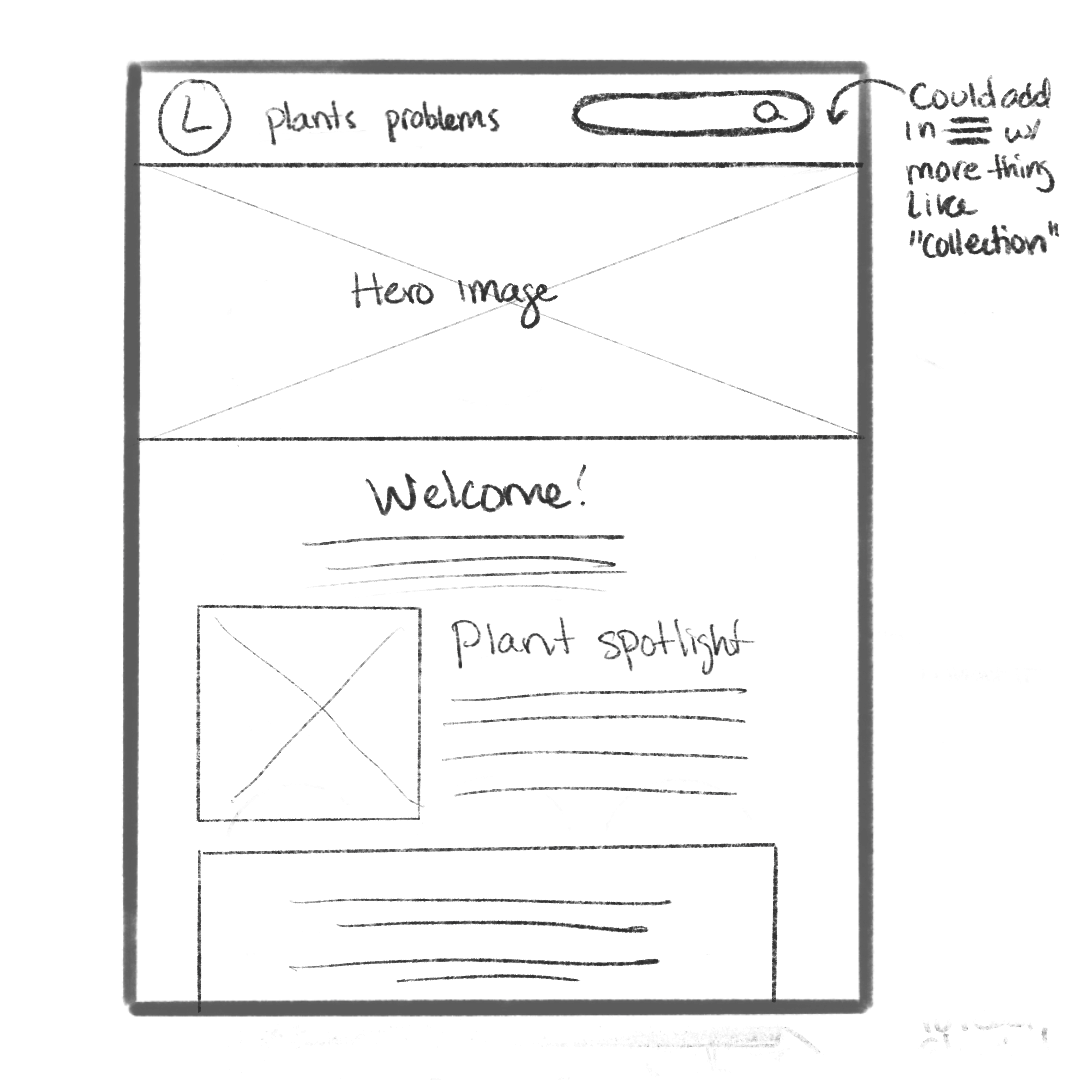 L plants problems
Could add
in ☰ w/
more thing
like
"Collection"
Hero image
Welcome!
Plant spotlight